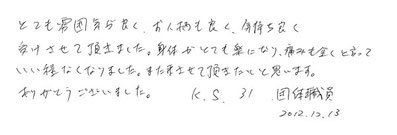 とても雰囲気が良く、お人柄も良く、気持ち良く
受けさせて頂きました。身体がとても楽になり、痛みも全くと言って
いい程なくなりました。また来させて頂きたいと思います。
ありがとうございました。 K.S. 31 団体職員
2012.12.13